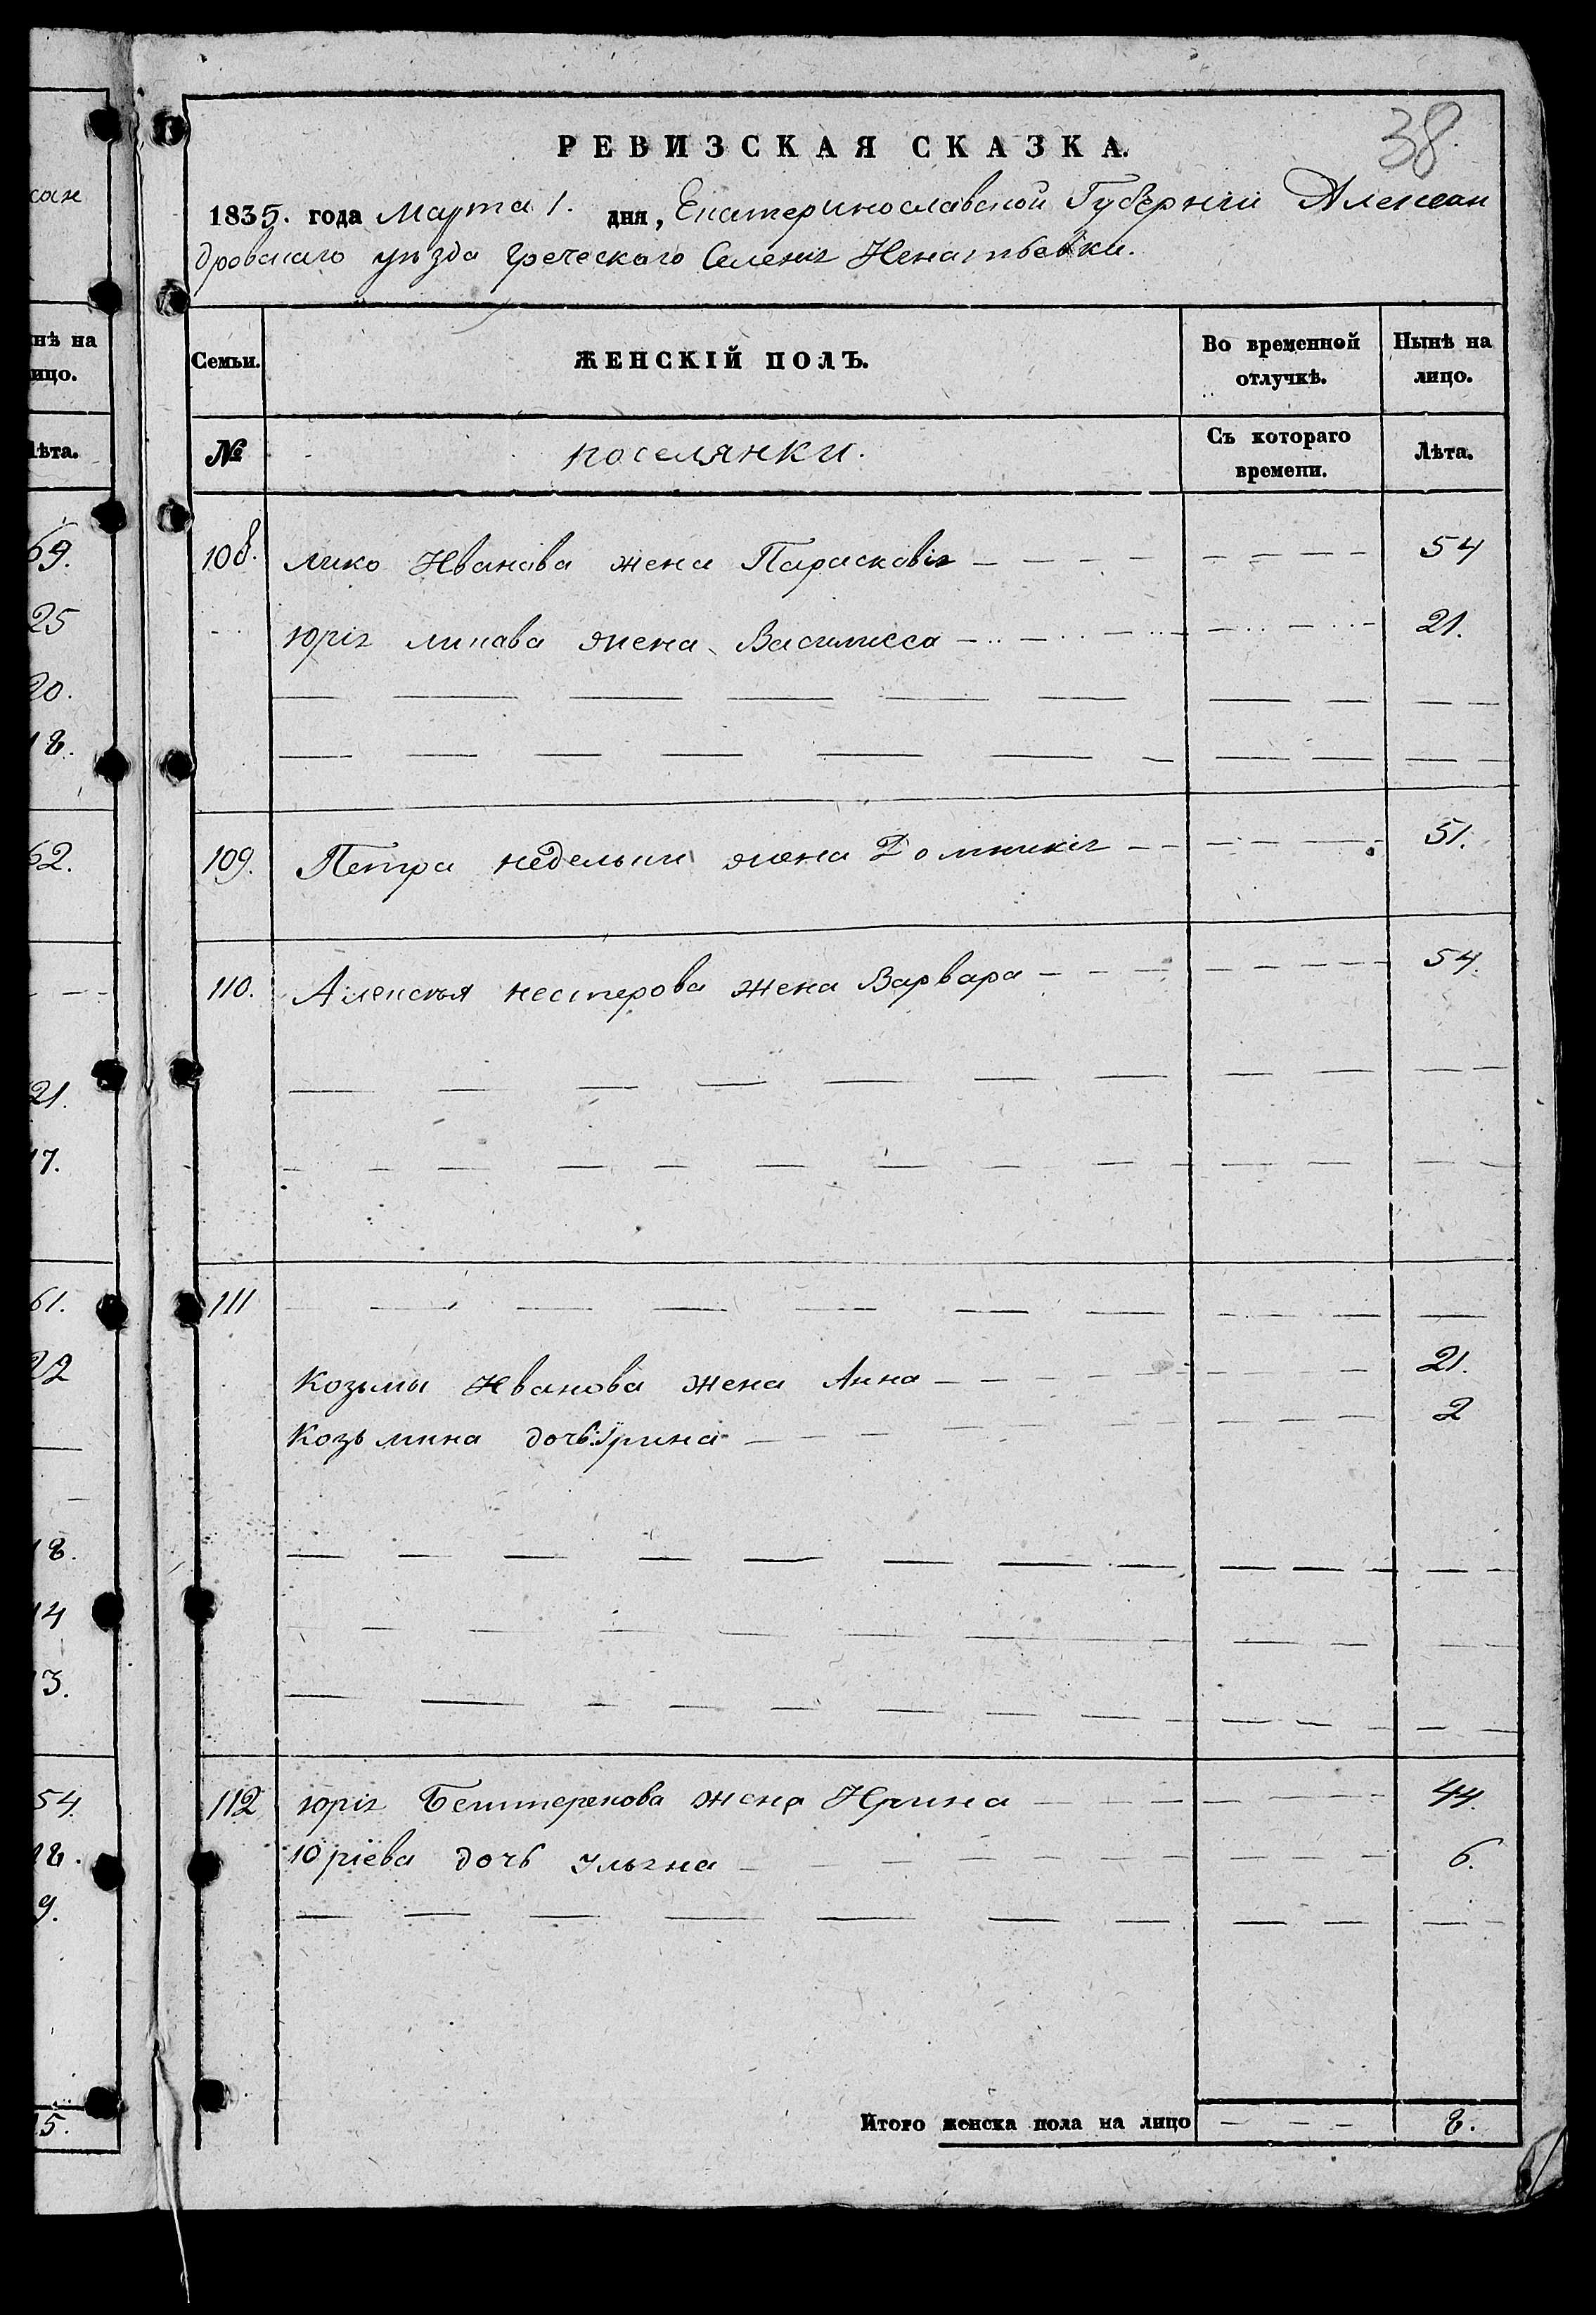 сан
нѣ на
ицо.
лѣта.
69.
25
20.
18.
62.
21.
17.
61.
22
18.
14
13.
54.
18.
9.
15.
38
РЕВИЗСКАЯ СКАЗКА.
1835. года Марта 1. дня, Екатеринославской Губерніи Алексан
дровскаго уѣзда Греческаго Селенія Игнатьевки.
Семьи. ЖЕНСКІЙ ПОЛЪ. Во временной отлучкѣ. Нынѣ на лицо.
№ поселянки. Съ котораго времени. Лѣта.
108. лико Иванова жена Параскавія 54
юрія ликава жена Василисса 21.
109. Петра недельки жена Домникія 51.
110. Алексѣя нестерова жена Варвара 54.
111
Козьмы Иванова жена Анна 21.
Козьмина дочь Ирина 2
112 юрія Бештерекова жена Ирина 44.
Юріева дочь Ульяна 6.
Итого женска пола на лицо 8.